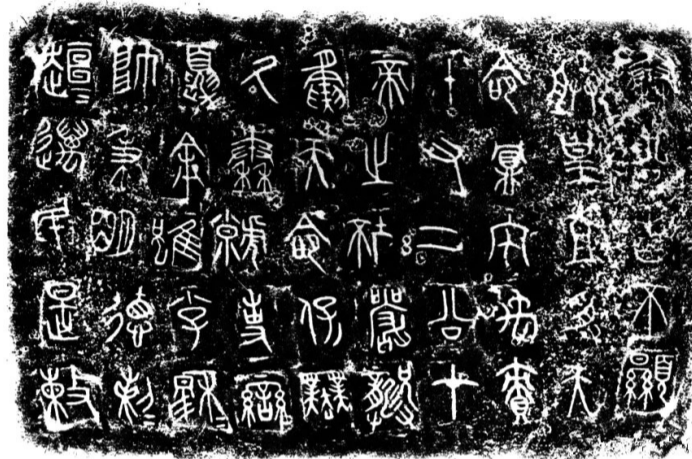 秦公曰不顯
朕皇且受天
命鼏宅禹賣
十又二公才
帝之坏嚴龏
夤天命保業
厥秦虩事蠻
夏余雖小子穆=
帥秉明德剌=
趄=邁民是敕